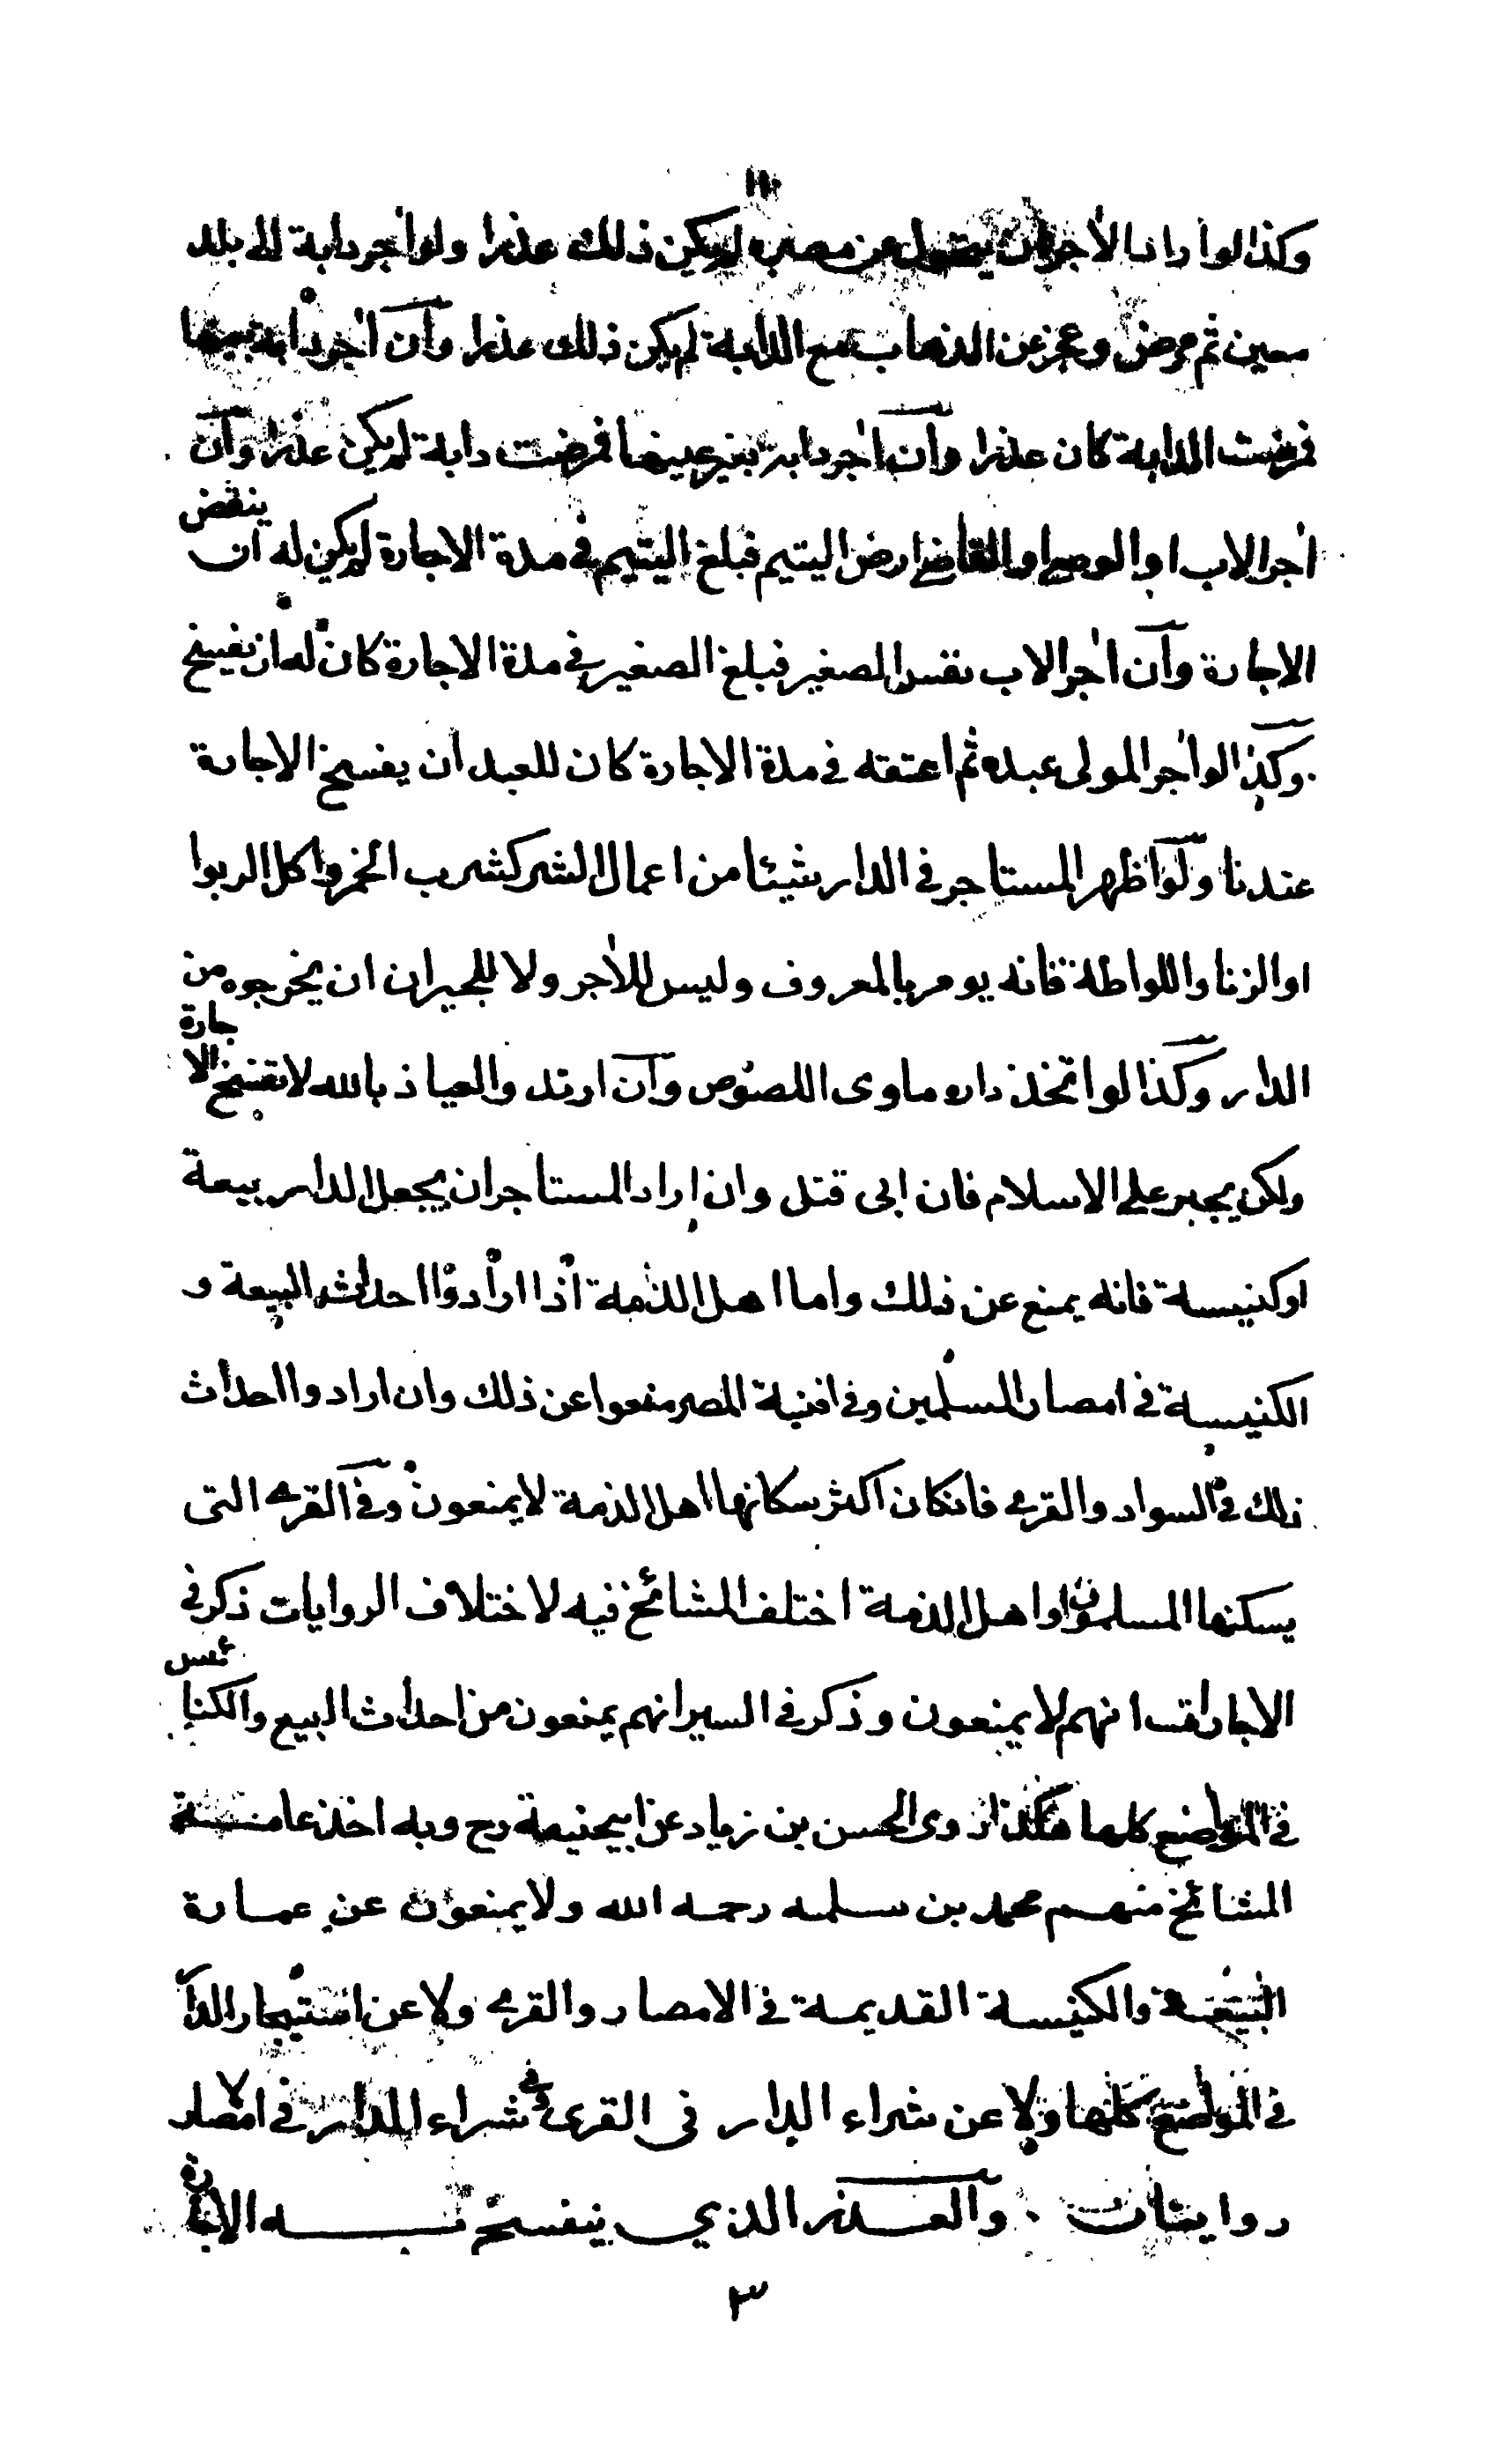 ١١٠
وكذا لو اراد الآجر ان يتحول عن مصره لم يكن ذلك عذرا ولو آجر دابة الى بلد
معين ثم مرض وعجز عن الذهاب مع الدابة لم يكن ذلك عذرا وان آجر دابة بعينها
فمرضت الدابة كان عذرا وان آجر دابة بغير عينها فمرضت دابة لم يكن عذرا وان
آجر الاب او الوصى او القاضى ارض اليتيم فبلغ اليتيم فى مدة الاجارة لم يكن له ان ينقض
الاجارة وان آجر الاب نفس الصغير فبلغ الصغير فى مدة الاجارة كان له ان يفسخ
وكذا لو آجر المولى عبده ثم اعتقه فى مدة الاجارة كان للعبد ان يفسخ الاجارة
عندنا ولو اظهر المستاجر فى الدار شيئا من اعمال الشر كشرب الخمر واكل الربوا
او الزنا واللواطة فانه يومر بالمعروف وليس للآجر ولا للجيران ان يخرجوه من
الدار وكذا لو اتخذ داره ماوى اللصوص وان ارتد والعياذ بالله لا تفسخ الاجارة
ولكن يجبر على الاسلام فان ابى قتل وان اراد المستاجر ان يجعل الدار بيعة
او كنيسة فانه يمنع عن ذلك واما اهل الذمة اذا ارادوا احداث البيعة و
الكنيسة فى امصار المسلمين وفى افنية المصر منعوا عن ذلك وان ارادوا احداث
ذلك فى السواد والقرى فانكان اكثر سكانها اهل الذمة لا يمنعون وفى القرى التى
يسكنها المسلمون او اهل الذمة اختلف المشائخ فيه لاختلاف الروايات ذكر فى
الاجارات انهم لا يمنعون وذكر فى السير انهم يمنعون من احداث البيع والكنائس
فى المواضع كلها هكذا روى الحسن بن زياد عن ابيحنيفة رح وبه اخذ عامة
المشائخ منهم محمد بن سلمه رحمه الله ولا يمنعون عن عمارة
البيعة والكنيسة القديمة فى الامصار والقرى ولا عن استيجار الدار
فى المواضع كلها ولا عن شراء الدار فى القرى وفى شراء الدار فى الامصار
روايتان والعذر الذي ينفسخ به الاجارة
٣